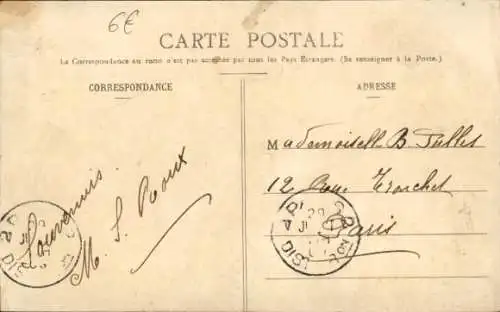 6€
CARTE POSTALE
La Correspondance au recto n'est pas acceptée par tous les Pays Étrangers. (Se renseigner à la Poste.)
CORRESPONDANCE
ADRESSE
Souvenirs
M. S. Roux
Mademoiselle B.
12 Rue Tronchet
Paris
DIS